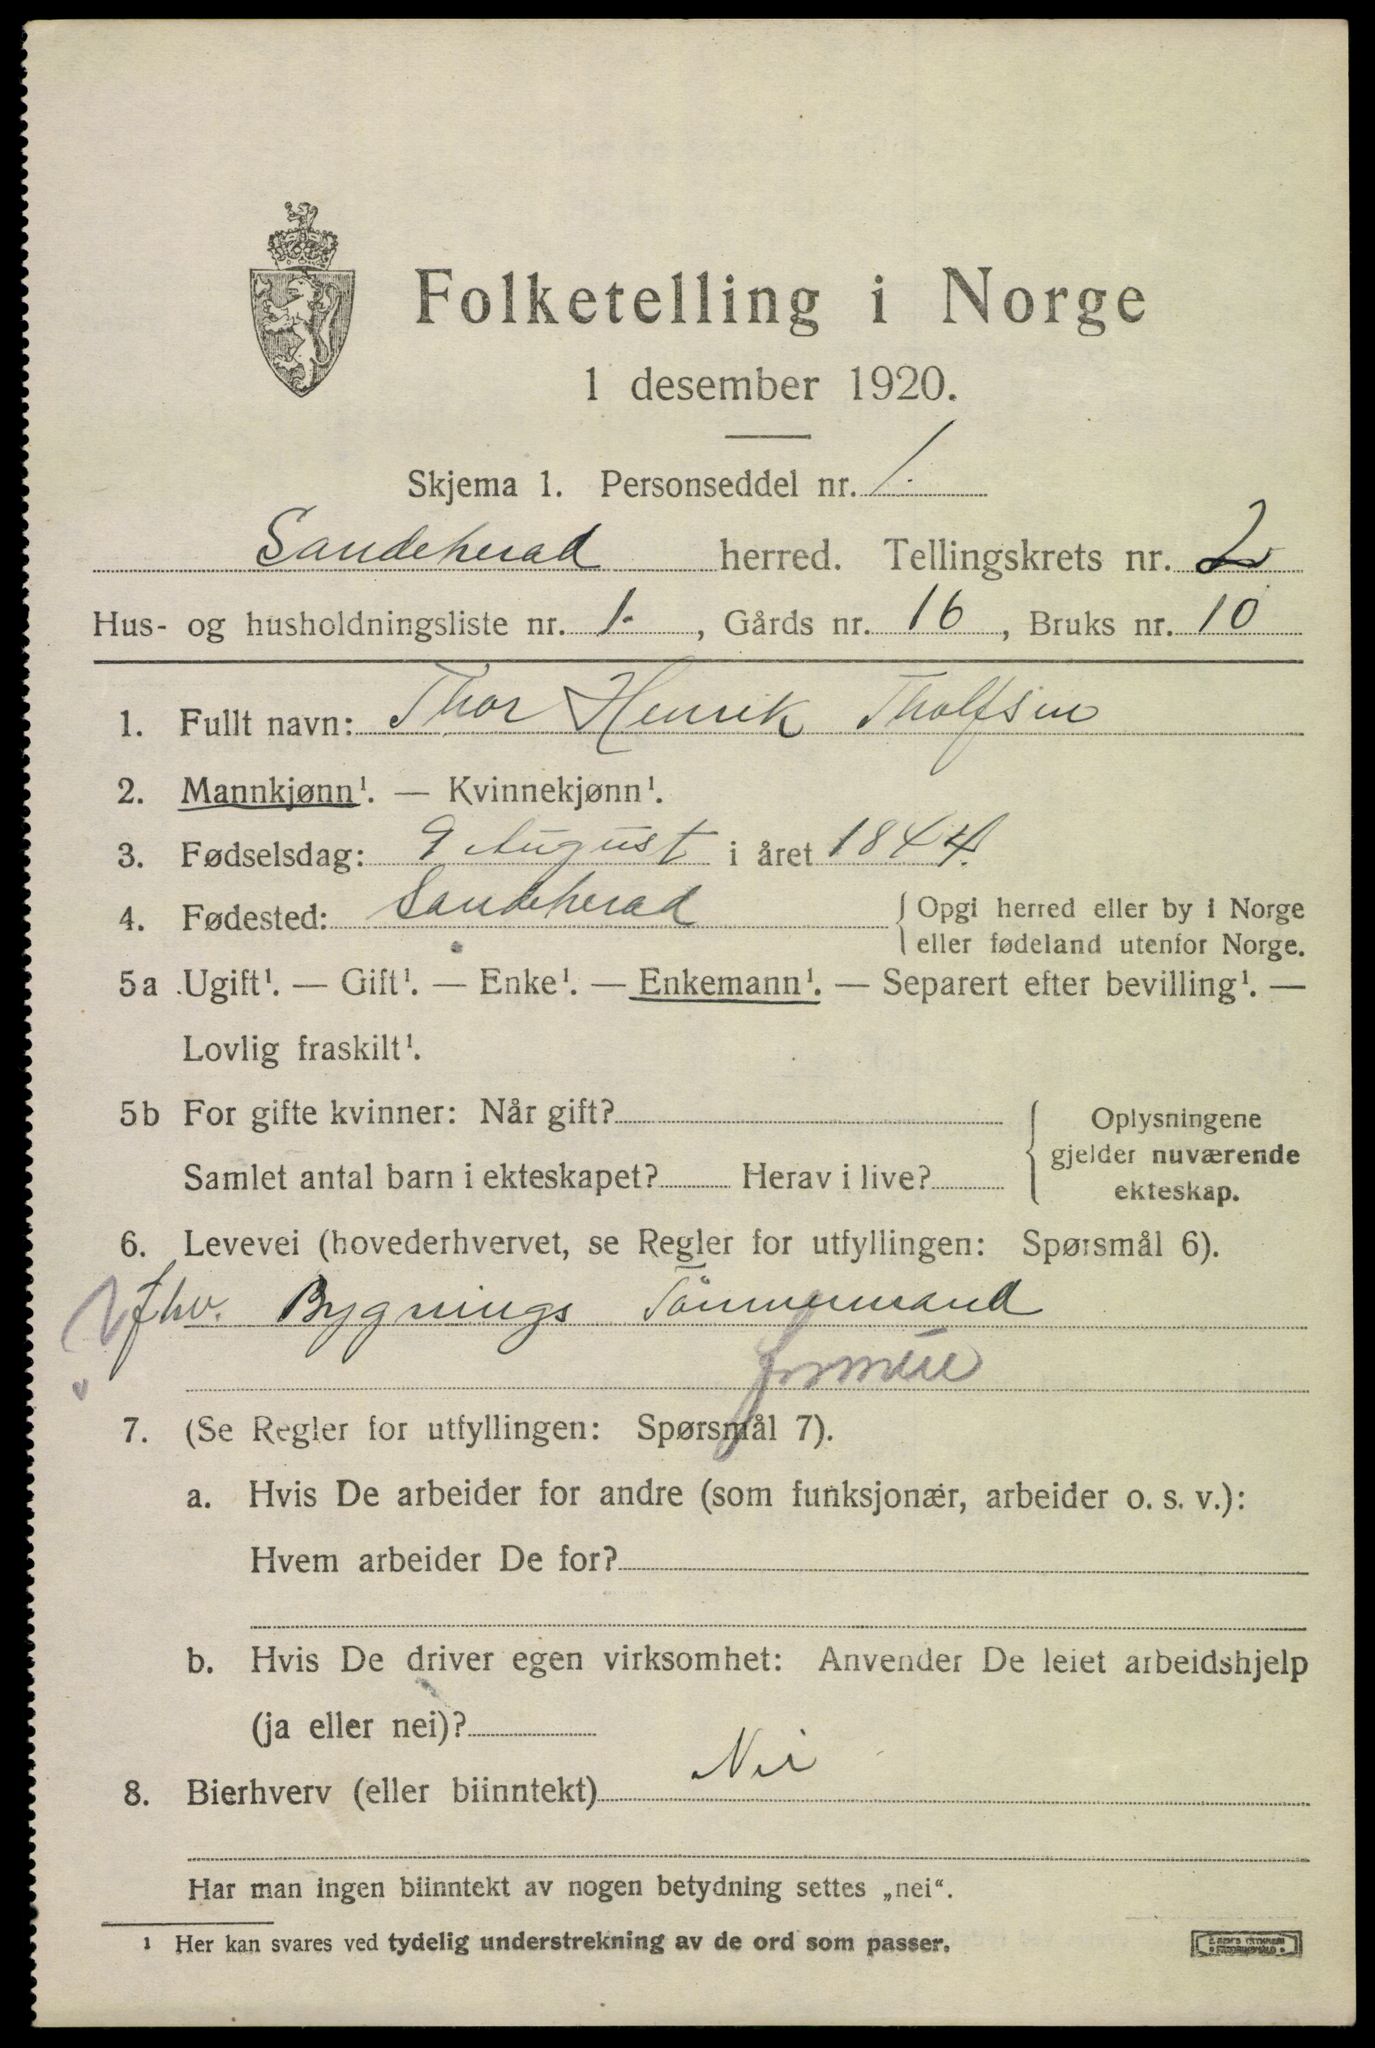 Folketelling i Norge
1 desember 1920.
Skjema 1. Personseddel nr. 1.
Sandeherad herred. Tellingskrets nr. 2
Hus- og husholdningsliste nr. 1. , Gårds nr. 16 , Bruks nr. 10
1. Fullt navn: Thor Henrik Tholfsen
2. Mannkjønn¹. — Kvinnekjønn¹.
3. Fødselsdag: 9 August i året 1844.
4. Fødested: Sandeherad { Opgi herred eller by i Norge
eller fødeland utenfor Norge.
5a Ugift¹. — Gift¹. — Enke¹. — Enkemann¹. — Separert efter bevilling¹. —
Lovlig fraskilt¹.
5b For gifte kvinner: Når gift?
Samlet antal barn i ekteskapet? Herav i live?
{ Oplysningene
gjelder nuværende
ekteskap.
6. Levevei (hovederhvervet, se Regler for utfyllingen: Spørsmål 6).
fhv. Bygnings Tømmermand
formue
7. (Se Regler for utfyllingen: Spørsmål 7).
a. Hvis De arbeider for andre (som funksjonær, arbeider o. s. v.):
Hvem arbeider De for?
b. Hvis De driver egen virksomhet: Anvender De leiet arbeidshjelp
(ja eller nei)?
8. Bierhverv (eller biinntekt) Nei
Har man ingen biinntekt av nogen betydning settes „nei“.
¹ Her kan svares ved tydelig understrekning av de ord som passer.